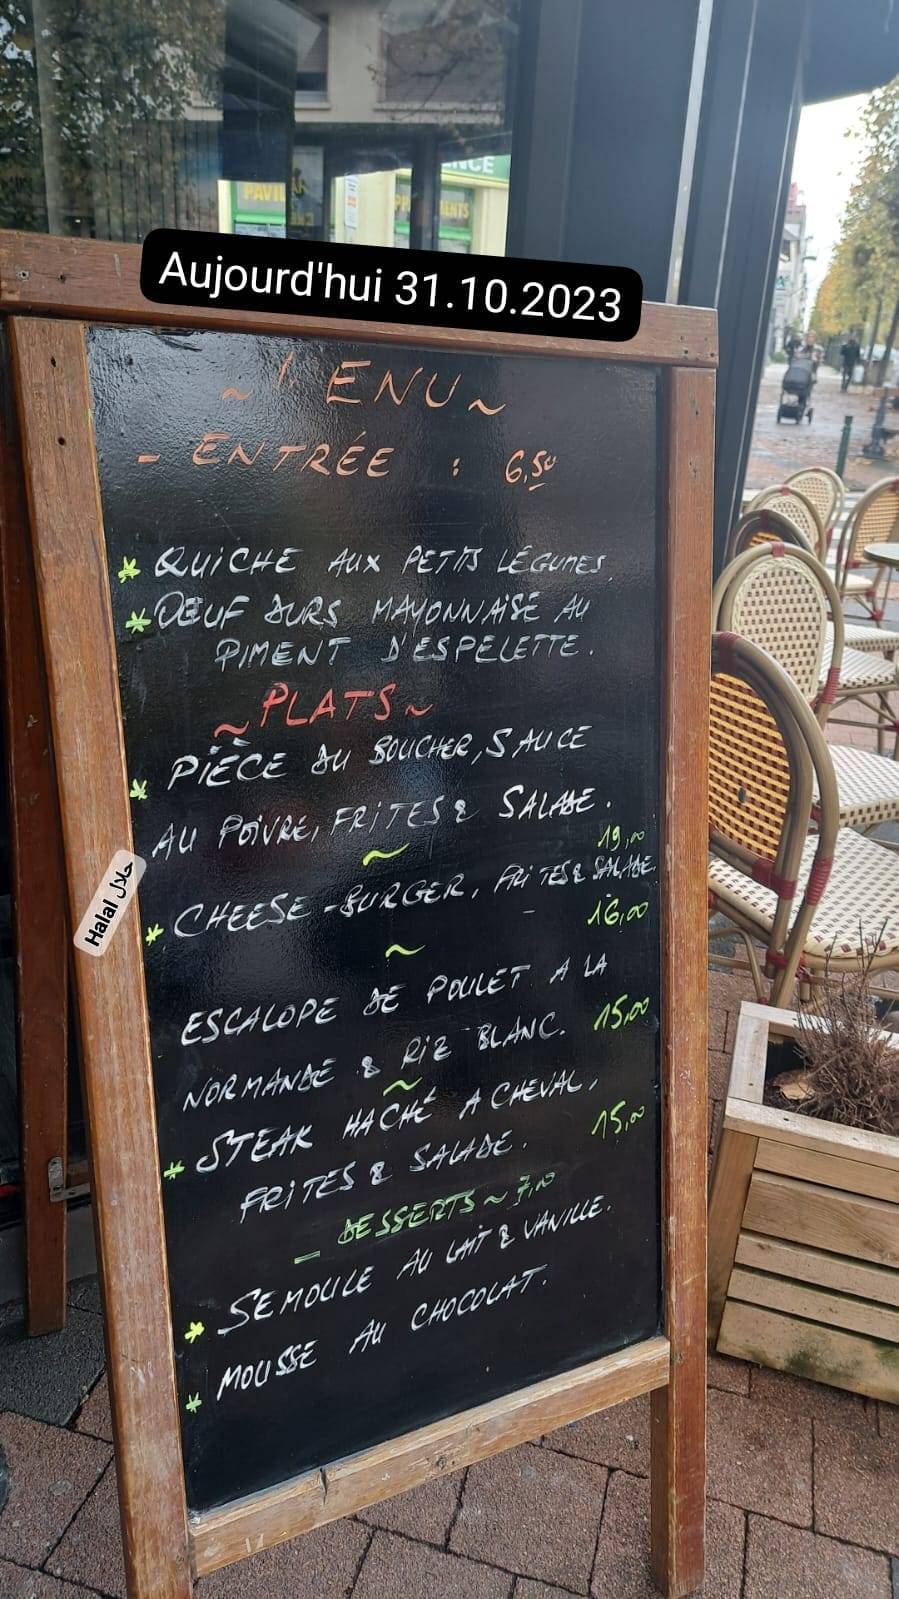 ENCE
PAVIL
Aujourd'hui 31.10.2023
~ MENU ~
- ENTRÉE : 6,50
* QUICHE AUX PETITS LÉGUMES.
* OEUF DURS MAYONNAISE AU
PIMENT D'ESPELETTE.
~ PLATS ~
* PIÈCE DU BOUCHER, SAUCE
AU POIVRE, FRITES & SALADE.
19,00
~
* CHEESE-BURGER, FRITES & SALADE.
- 16,00
~
ESCALOPE DE POULET A LA
NORMANDE & RIZ BLANC. 15,00
~
* STEAK HACHÉ A CHEVAL,
FRITES & SALADE. 15,00
- DESSERTS ~ 7,10
* SEMOULE AU LAIT & VANILLE.
* MOUSSE AU CHOCOLAT.
Halal حلال